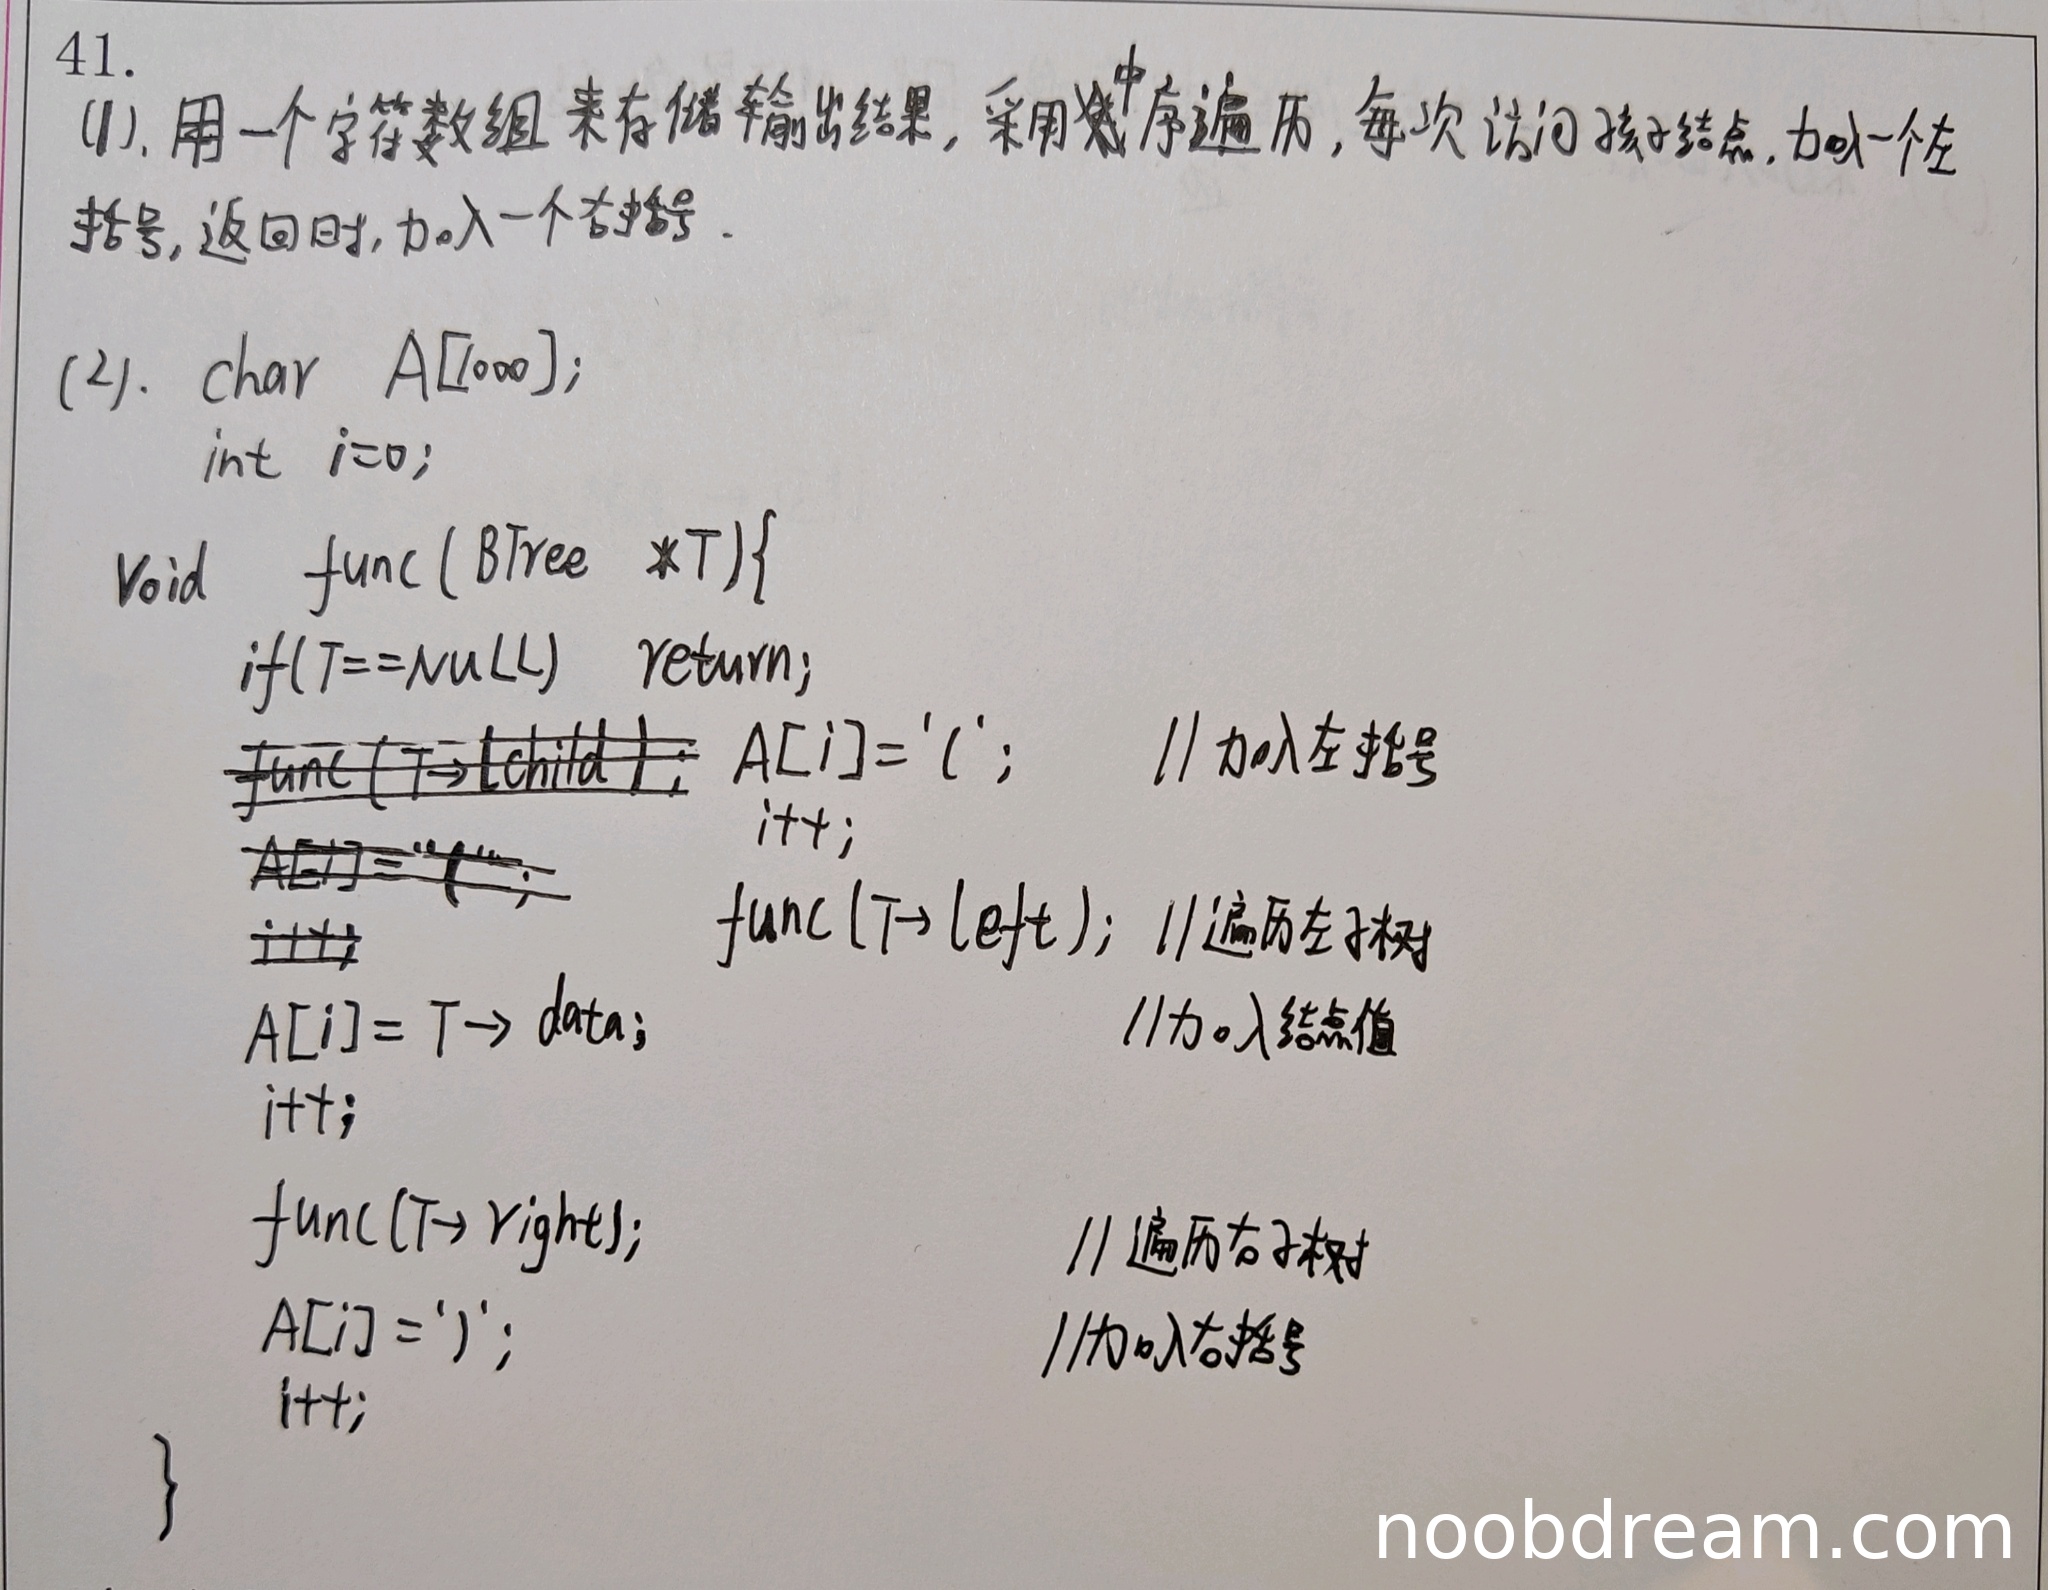 41.
(1). 用一个字符数组来存储输出结果, 采用中序遍历, 每次访问孩子结点, 加入一个左
括号, 返回时, 加入一个右括号.
(2). char A[1000];
int i=0;
void func(BTree *T){
if(T==NULL) return;
func(T→lchild); A[i]='('; //加入左括号
i++;
A[i]="(";
func(T→left); //遍历左子树
i++;
A[i]=T→data; //加入结点值
i++;
func(T→right); //遍历右子树
A[i]=')'; //加入右括号
i++;
}
noobdream.com